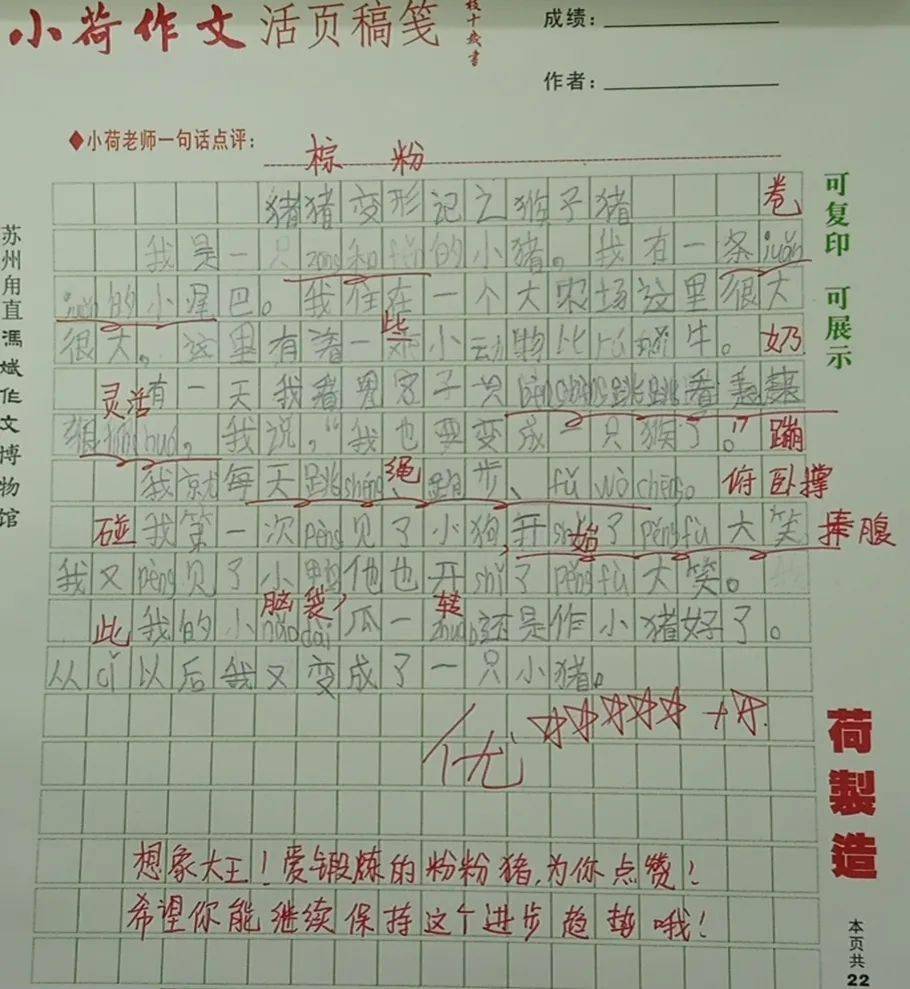 小荷作文活页稿笺
成绩：
作者：
◆小荷老师一句话点评：
棕 粉
猪猪变形记之猴子猪 卷
我是一只zong和fěn的小猪。我有一条juǎn
的小尾巴。我住在一个大农场这里很大
很大，这里有着一些小动物比rú nǎi牛。奶
灵活 有一天我看见 子只 跳跳看
很 huó，我说，“我也要变成一只猴子。” 蹦
我就每天跳shéng绳、跑步、fǔ wò chēng。俯卧撑
碰 我第一次pèng见了小狗，开shǐ始了pěng fù大笑 捧腹
我又pèng见了小鸭他也开shǐ了pěng fù大笑。
脑袋 转
此 我的小nǎo dài瓜一zhuǎn还是作小猪好了。
从cǐ以后我又变成了一只小猪。
优 ☆☆☆☆☆ +☆
想象大王！爱锻炼的粉粉猪，为你点赞！
希望你能继续保持这个进步趋势哦！
苏州甪直馮斌作文博物馆
可复印 可展示
荷製造
本页共
22